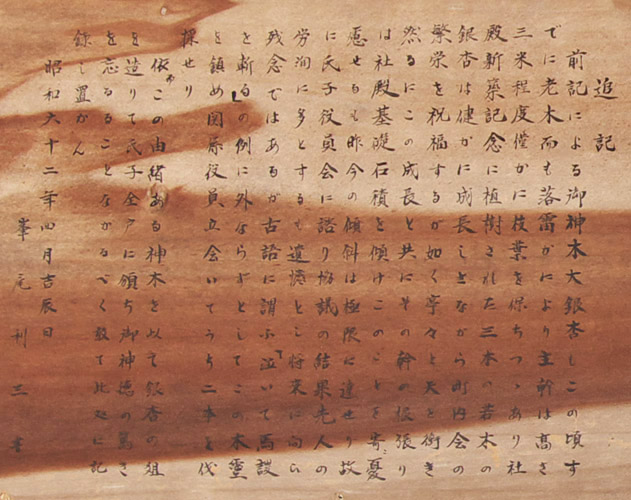 追記
前記による御神木大銀杏しこの頃す
でに老木而も落雷がにより主幹は高さ
三米程度僅かに枝葉を保ちつゝあり社
殿新築記念に植樹された三本の若木の
銀杏は健かに成長しとながら町内会の
繁栄を祝福するが如く亭々と天を衝き
然るにこの成長と共にその幹の根張り
は社殿基礎石積を傾けこのことを寄憂
悪せるも昨今の傾斜は極限に達せり故
に氏子役員会に諮り協議の結果先人の
労洵に多とするも遺憾とし将来に向ら
残念ではあるが古語に謂ふ「泣いて馬謖
を斬る」の例に外ならずとしてこの木霊
を鎮め関席役員立会いてうち二本を伐
採せり
依かこの由緒ある神木を以て銀杏の俎
を造りて氏子全戸に頒ち御神徳の篤き
を忘るることながるべく敢て此処に記
録し置かん
昭和六十二年四月吉辰日
峯尾刊三書